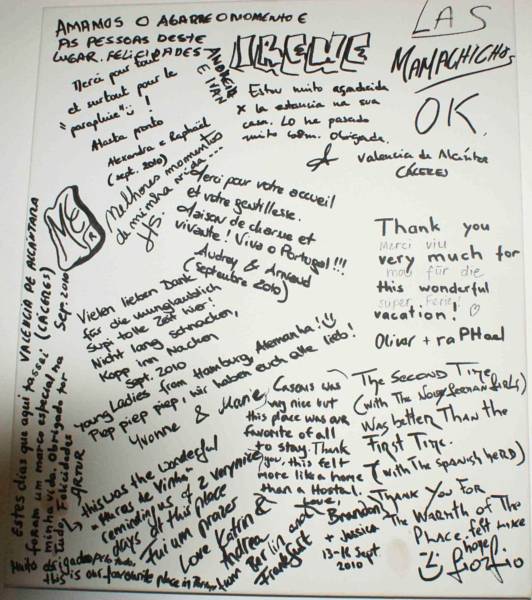 AMAMOS O AGARRE O MOMENTO E
AS PESSOAS DESTE
LUGAR. FELICIDADES
ANDREIA
E IVAN
Merci pour tout
et surtout pour le
"parapluie" !
Hasta pronto
Alexandra e Raphaël
(sept. 2010)
IRENE
Estou muito agradecida
x la estancia na sua
casa. Lo he pasado
muito bom. Obrigada.
LAS
MAMACHICHOS
OK.
Valencia de Alcántara
CÁCERES
Melhores momentos
da minha vida...
Merci pour votre accueil
et votre gentillesse.
Maison de charme et
vivante! Viva o Portugal!!!
Audrey & Arnaud
(Septembre 2010)
ME
Thank you
Merci
very much for
für die
this wonderful
super Ferie!
vacation!
Oliver + raPHael
Vielen lieben Dank
für die unglaublich
Supi tolle Zeit hier!
Nicht lang schnacken,
Kopp inn Nacken
Sept. 2010
Young Ladies from Hamburg, Alemanha!
Piep piep piep, wir haben euch alle lieb!
Yvonne & Marie
VALENCIA DE ALCÁNTARA
(CÁCERES)
Sep. 2010
Estes dias que aqui passei
foram um marco especial na
minha vida. Obrigado por
tudo, Felicidades
ARTUR
this was the wonderful
"Heras de Vinha"
reminding us of 2 very nice
days at this place
Fui um prazer
Love Katrin &
Andrea
from Berlin and
Frankfurt
Muito obrigado
this is our favourite place in
Casons was
very nice but
this place was our
favorite of all
to stay. Thank
you, this felt
more like a home
than a Hostal.
Love,
Brandon
+ Jessica
13-16 Sept.
2010
The SECOND TIME
(WITH THE GERMAN GIRLS)
WAS BETTER THAN THE
FIRST TIME.
(WITH THE SPANISH HERD)
THANK YOU FOR
THE WARMTH OF THE
PLACE. felt like
home